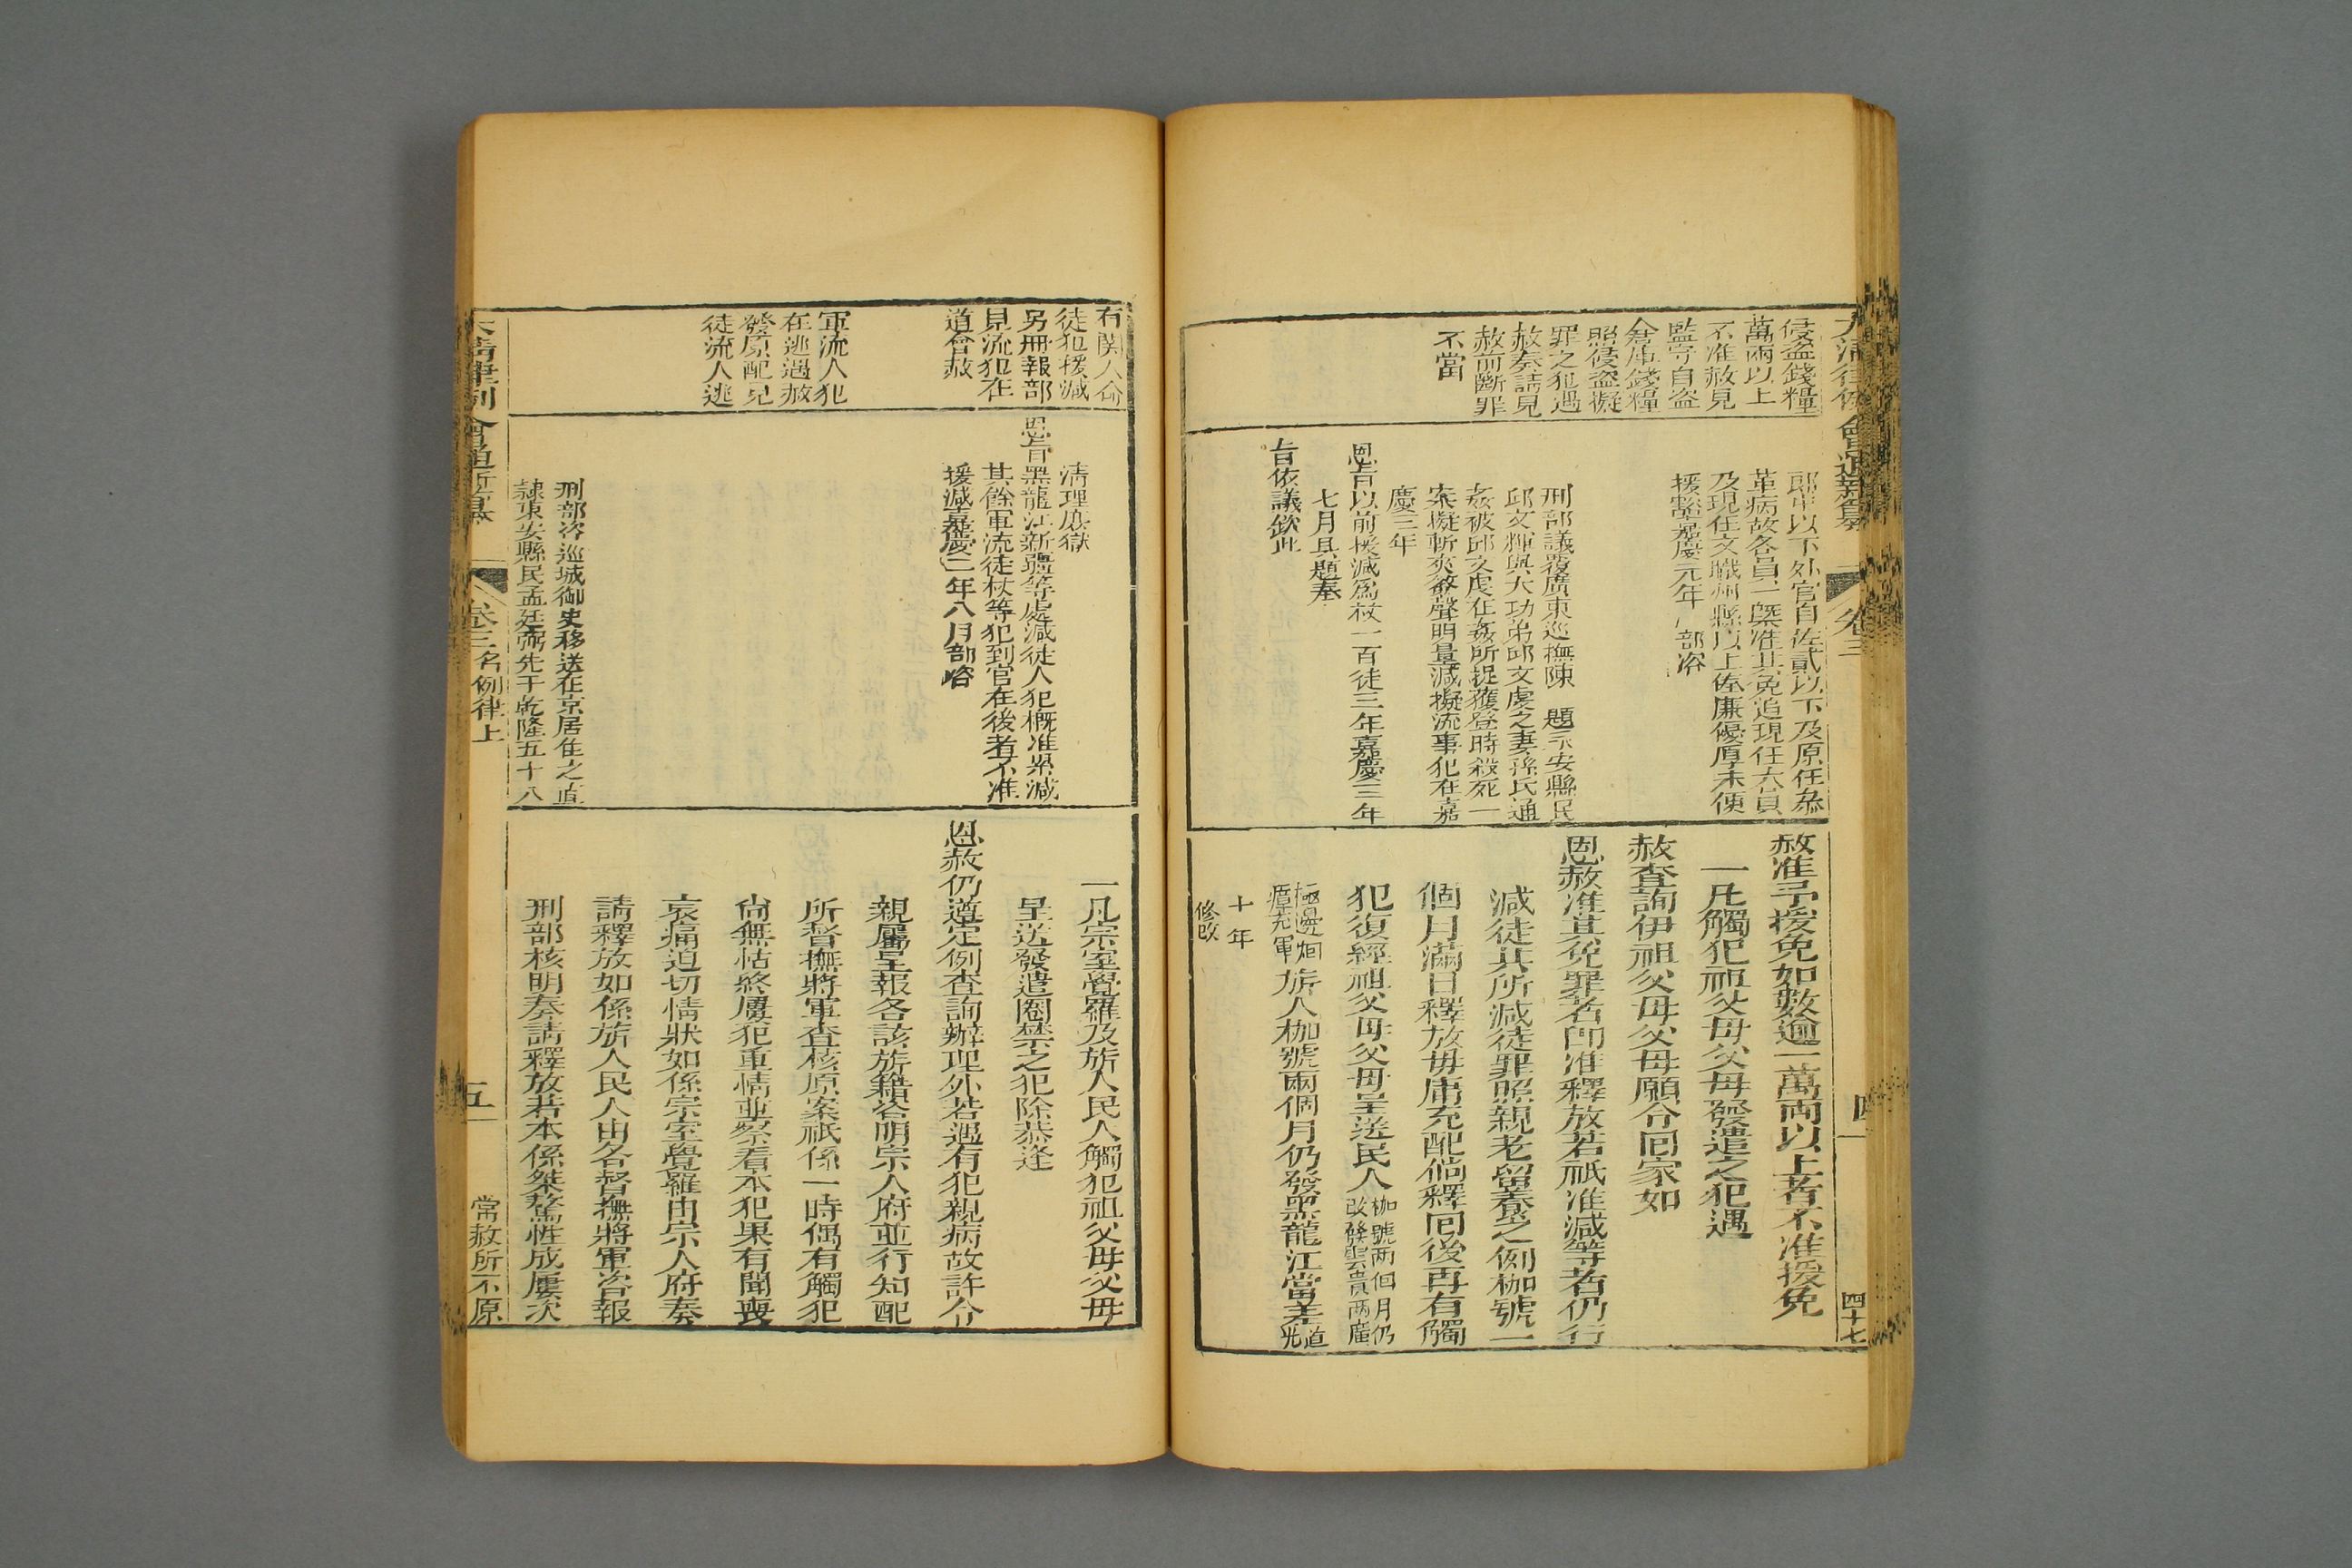 侵盜錢糧
萬兩以上
不准赦見
監守自盜
倉庫錢糧
照侵盜擬
罪之犯遇
赦奏請見
赦前斷罪
不當
郎中以下外官自佐貳以下及原任叅
革病故各員一槩准其免追現任大員
及現任文職州縣以上俸廉優厚未便
援豁嘉慶元年 部咨
刑部議覆廣東巡撫陳 題永安縣民
邱文輝與大功弟邱文虔之妻孫氏通
姦被邱文虔在姦所捉獲登時殺死一
案擬斬夾簽聲明量減擬流事犯在嘉
慶三年
恩旨以前援減爲杖一百徒三年嘉慶三年
七月具題奉
旨依議欽此
赦准予援免如數逾一萬兩以上者不准援免
一凡觸犯祖父母父母發遣之犯遇
赦查詢伊祖父母父母願令囘家如
恩赦准其免罪者卽准釋放若祇准減等者仍行
減徒其所減徒罪照親老留養之例枷號一
個月滿日釋放毋庸充配倘釋囘後再有觸
犯復經祖父母父母呈送民人枷號两個月仍
改發雲貴两廣
極邊烟
瘴充軍旂人枷號兩個月仍發黑龍江當差道
光
十年
修改
卷三
四十七
有關人命
徒犯援減
另册報部
見流犯在
道會赦
軍流人犯
在逃遇赦
發原配見
徒流人逃
清理庶獄
恩旨黑龍江新疆等處減徒人犯概准累減
其餘軍流徒杖等犯到官在後者不准
援減嘉慶二年八月部咨
刑部咨巡城御史移送在京居住之直
隸東安縣民孟廷弼先于乾隆五十八
一凡宗室覺羅及旂人民人觸犯祖父母父母
呈送發遣圈禁之犯除恭逢
恩赦仍遵定例查詢辦理外若遇有犯親病故許令
親屬呈報各該旂籍咨明宗人府並行知配
所督撫將軍查核原案祇係一時偶有觸犯
尙無怙終屢犯重情並察看本犯果有聞喪
哀痛迫切情狀如係宗室覺羅由宗人府奏
請釋放如係旂人民人由各督撫將軍咨報
刑部核明奏請釋放若本係桀驁性成屢次
大清律例會通新纂
卷三名例律上
五
常赦所不原